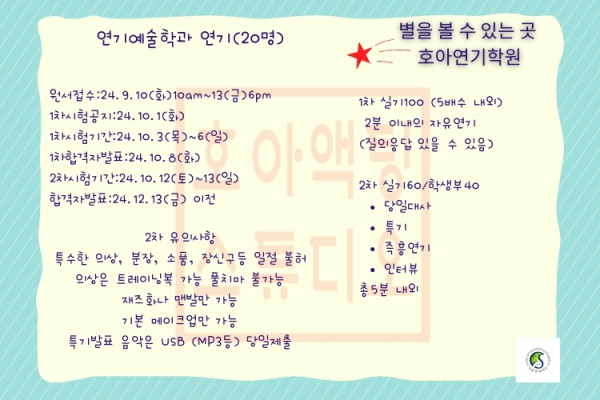 연기예술학과 연기(20명)
별을 볼 수 있는 곳
호아연기학원
원서접수:24.9.10(화)10am~13(금)6pm
1차시험공지:24.10.1(화)
1차시험기간:24.10.3(목)~6(일)
1차합격자발표:24.10.8(화)
2차시험기간:24.10.12(토)~13(일)
합격자발표:24.12.13(금) 이전
2차 유의사항
특수한 의상, 분장, 소품, 장신구등 일절 불허
의상은 트레이닝복 가능 풀치마 불가능
재즈화나 맨발만 가능
기본 메이크업만 가능
특기발표 음악은 USB (MP3등) 당일제출
1차 실기100 (5배수 내외)
2분 이내의 자유연기
(질의응답 있을 수 있음)
2차 실기60/학생부40
• 당일대사
• 특기
• 즉흥연기
• 인터뷰
총5분 내외
호아액팅
스튜디오